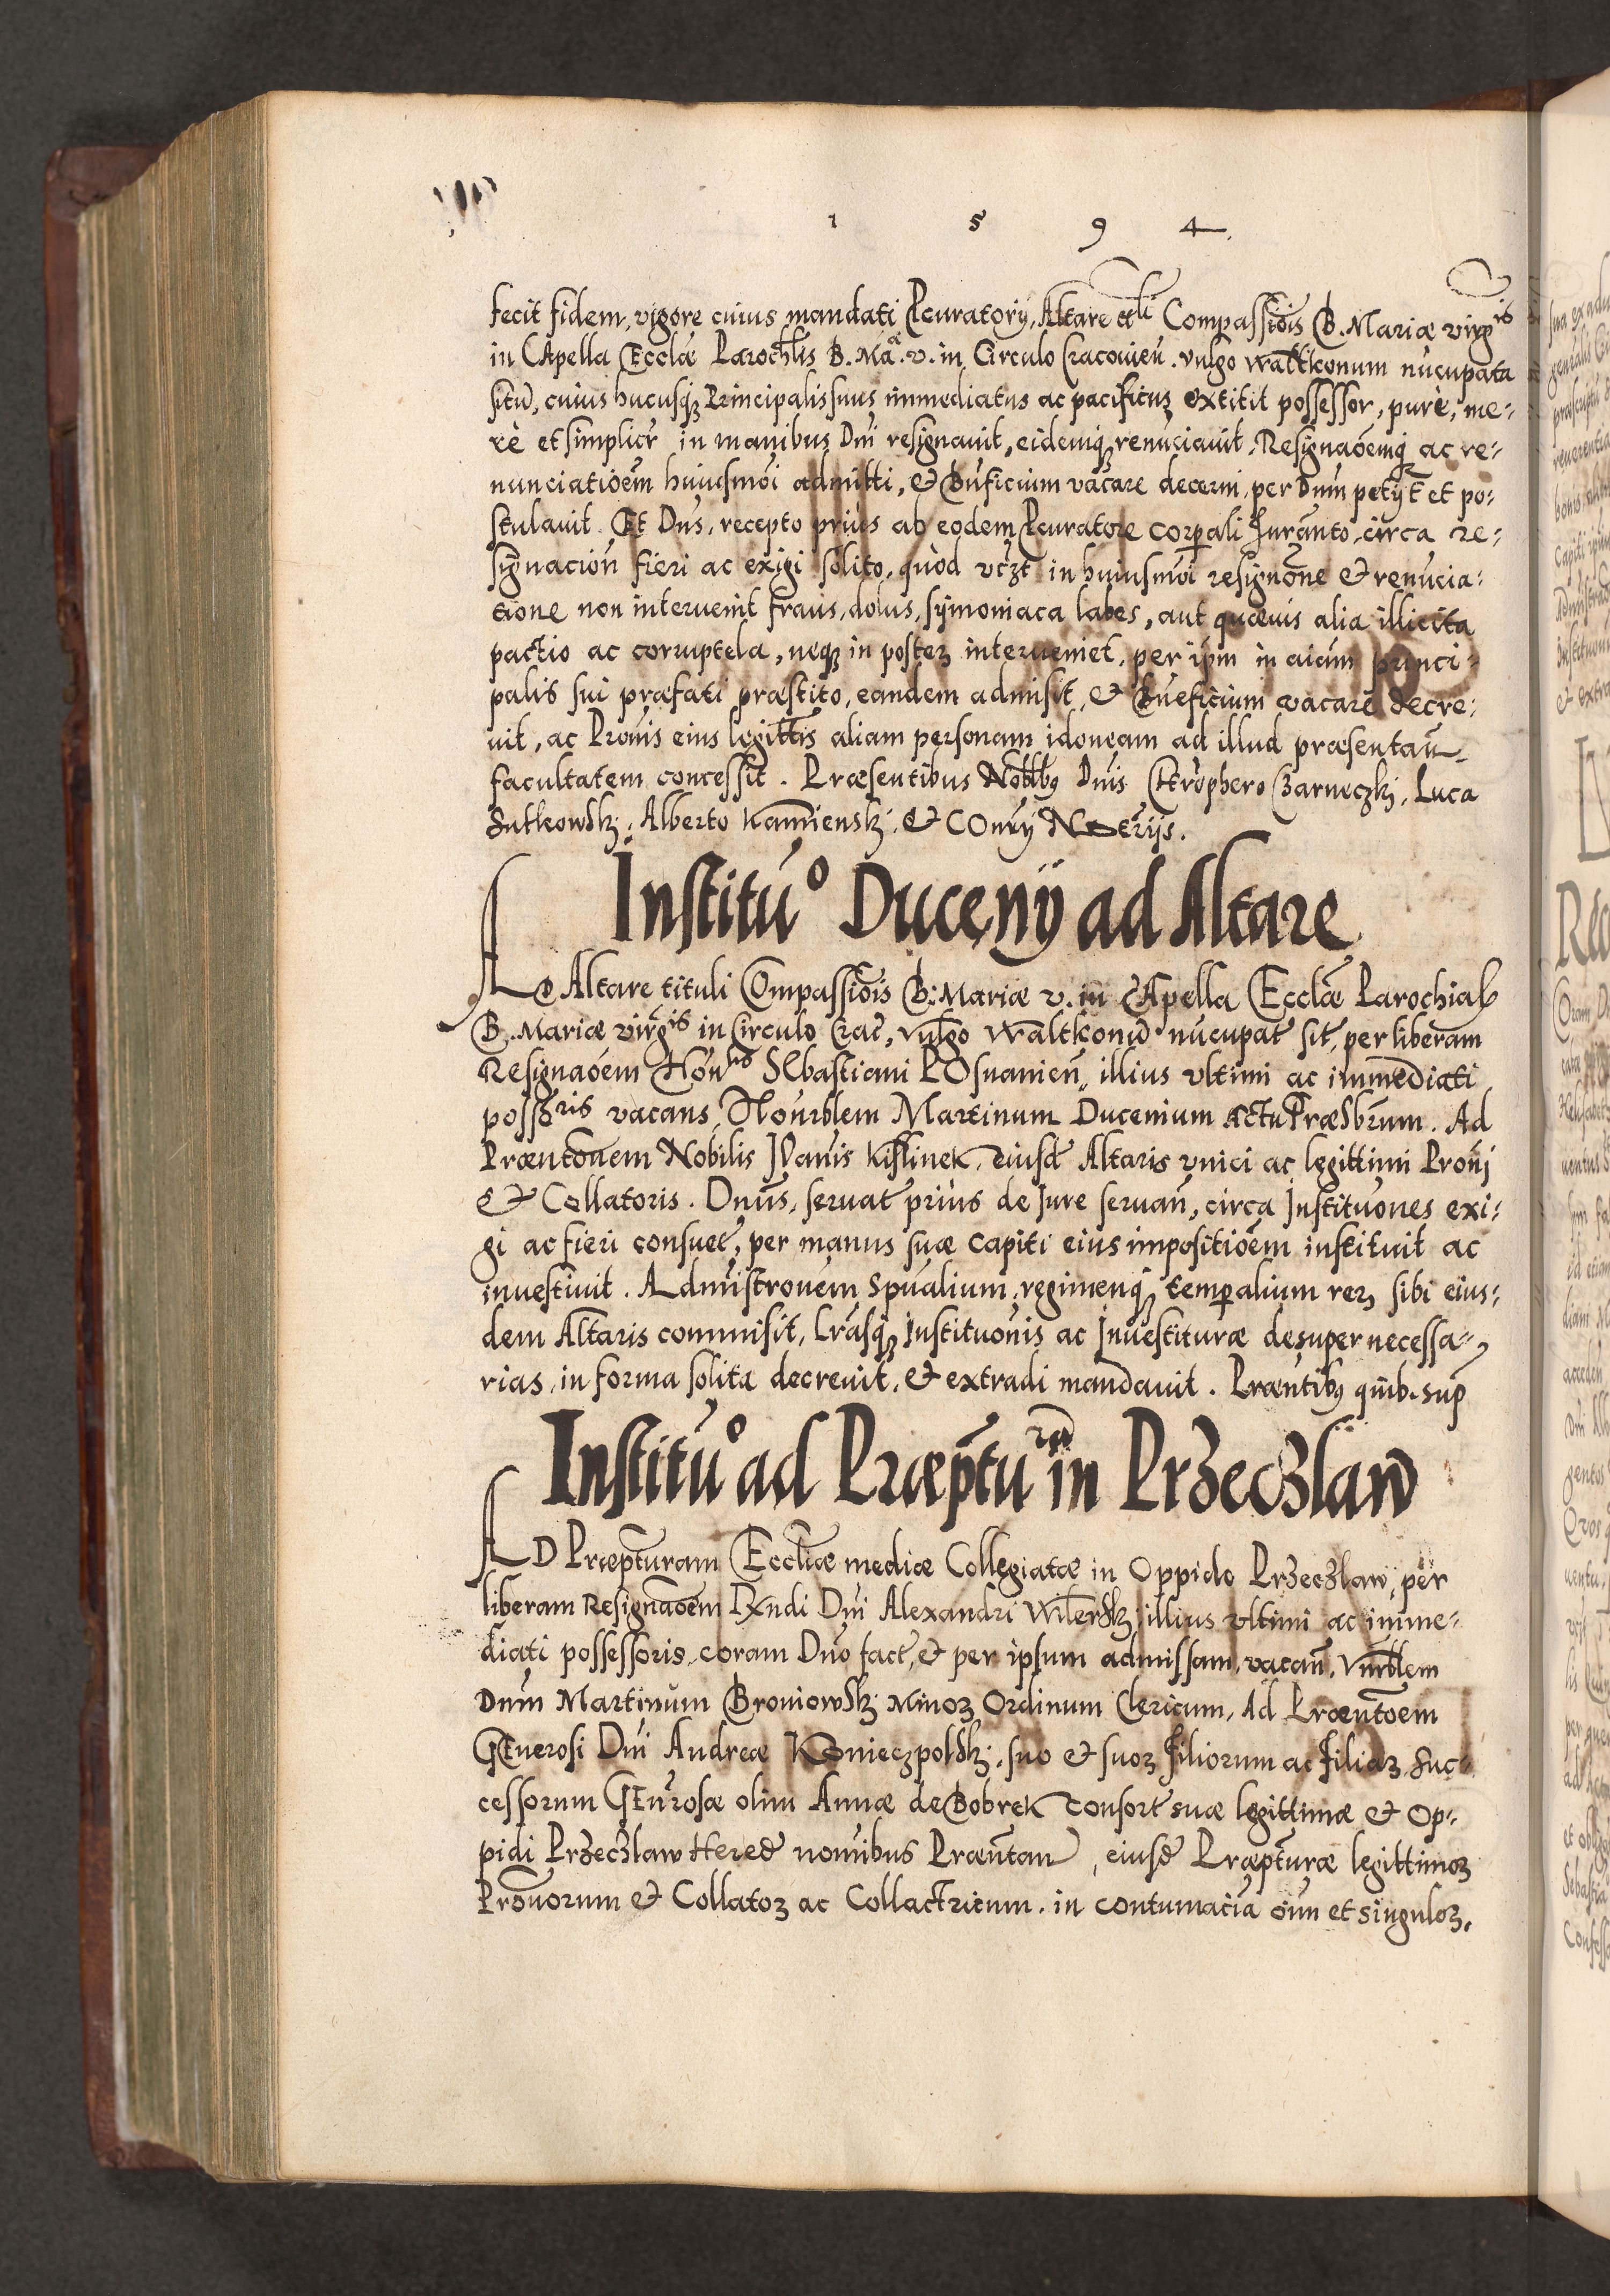 1 5 9 4.
fecit fidem, vigore cuius mandati Pcuratorij, Altare ttli Compassiõis B. Mariæ virgis
in CApella Ecclæ Parochlis B. Maæ. v. in Circulo Cracouieñ. vulgo waltkonum nũcupata
sitũ, cuius hucusqʒ Principalis suus immediatus ac pacificus extitit possessor, purè, me-
rè et simplicr in manibus Dni resignauit, eidemqʒ renũciauit. Resignaõemqʒ ac re-
nunciatiõem huiusmõi admitti, & Bnficium vacare decerni, per Dnm petijt et po-
stulauit. Et Dns, recepto prius ab eodem Pcuratore corporali Iuranto, circa re-
signacioñ fieri ac exigi solito, quòd vczt in huiusmõi resignõne & renũcia-
tione non interuenit fraus, dolus, symoniaca labes, aut quæuis alia illicita
pactio ac corruptela, neqʒ in posteʒ interueniet, per ipm in aiam princi-
palis sui præfati præstito, eandem admisit, & Bneficium vacare decre-
uit, ac Pronis eius legittis aliam personam idoneam ad illud præsentañ
facultatem concessit. Præsentibus Nobbꝰ Dnis Chrophero Czarneczkj, Luca
Sutkowskj, Alberto Kamienskj, & COnrj Noterijs.
Institũo Ducenij ad Altare
AD Altare tituli Compassiõis B. Mariæ v. in CApella Ecclæ Parochial
B. Mariæ virgis in Circulo Crac, vulgo waltkonũ nũcupat sit, per liberam
Resignaõem Honlis SEbastiani POsnanieñ, illius vltimi ac immediati
possoris vacans, Honrblem Martinum Ducenium actu Præsbrum. Ad
Præntõnem Nobilis IOanis Kislinek, eiusd Altaris vnici ac legittimi Pronj
& Collatoris. Dnus, seruat prius de Iure seruañ, circa Instituones exi-
gi ac fieri consuet, per manus suæ capiti eius impositiõem instituit ac
inuestiuit. Administronem spualium, regimenqʒ temporalium reʒ, sibi eius-
dem Altaris commisit, Lrasqʒ Instituonis ac Inuestituræ desuper necessa-
rias, in forma solita decreuit, & extradi mandauit. Præntibꝰ quib. sup
Institũo ad Præptura in Przeczlaw
AD Præpturam Eccliæ mediæ Collegiatæ in Oppido Przeczlaw, per
liberam Resignaõem RXndi Dni Alexandri Wilerskj, illius vltimi ac imme-
diati possessoris, coram Dno fact, & per ipsum admissam, vacañ, Vnrblem
Dnm Martinum Broniowskj Minoʒ Ordinum Clericum, Ad Præntõem
GEnerosi Dni Andreæ KOnieczpolskj, suo & suoʒ filiorum ac filiaʒ suc-
cessorum GEnrosæ olim Annæ de Bobrek consort suæ legittimæ & Op-
pidi Przeczlaw Hered nomibus Præntan, eiusd Præpturæ legittimoʒ
Pronorum & Collatoʒ ac Collactricum, in contumaciã oim et singuloʒ,